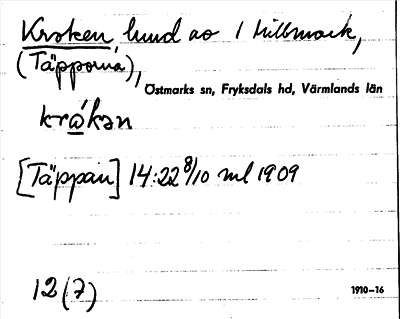 Kroken, lund av 1 Millmark,
(Täpporna),
Östmarks sn, Fryksdals hd, Värmlands län
kråkən
[Täppan] 14:22 8/10 ml 1909
12(7)
1910-16